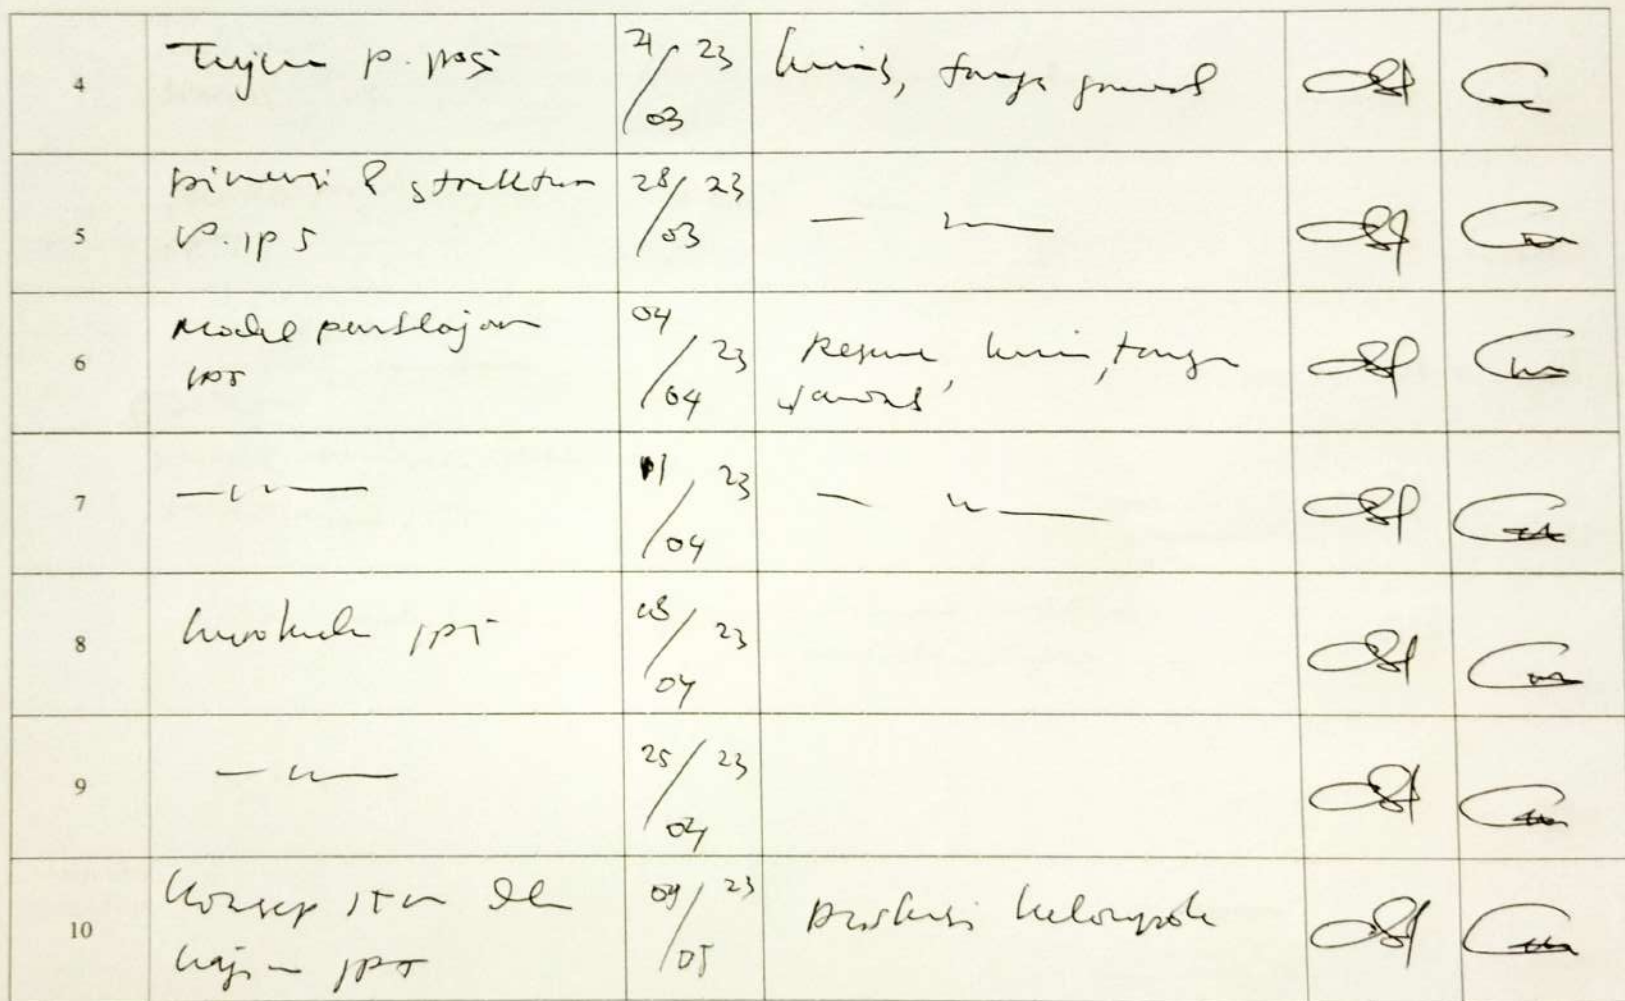 4
Tujuan P. IPS
21/03 23
kuis, tanya jawab
5
Dimensi & struktur
P. IPS
28/03 23
— " —
6
Model pembelajaran
IPS
04/04 23
Resume, kuis, tanya
jawab
7
— " —
11/04 23
— " —
8
Kurikulum IPS
18/04 23
9
— " —
25/04 23
10
Konsep
kajian IPS
09/05 23
Diskusi kelompok